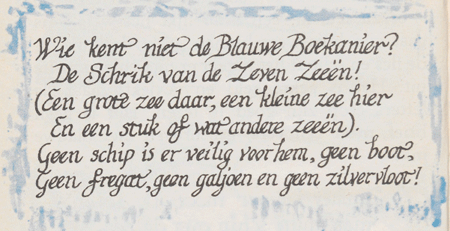 Wie kent niet de Blauwe Boekanier?
De Schrik van de Zeven Zeeën!
(Een grote zee daar, een kleine zee hier
En een stuk of wat andere zeeën).
Geen schip is er veilig voor hem, geen boot,
Geen fregat, geen galjoen en geen zilvervloot!